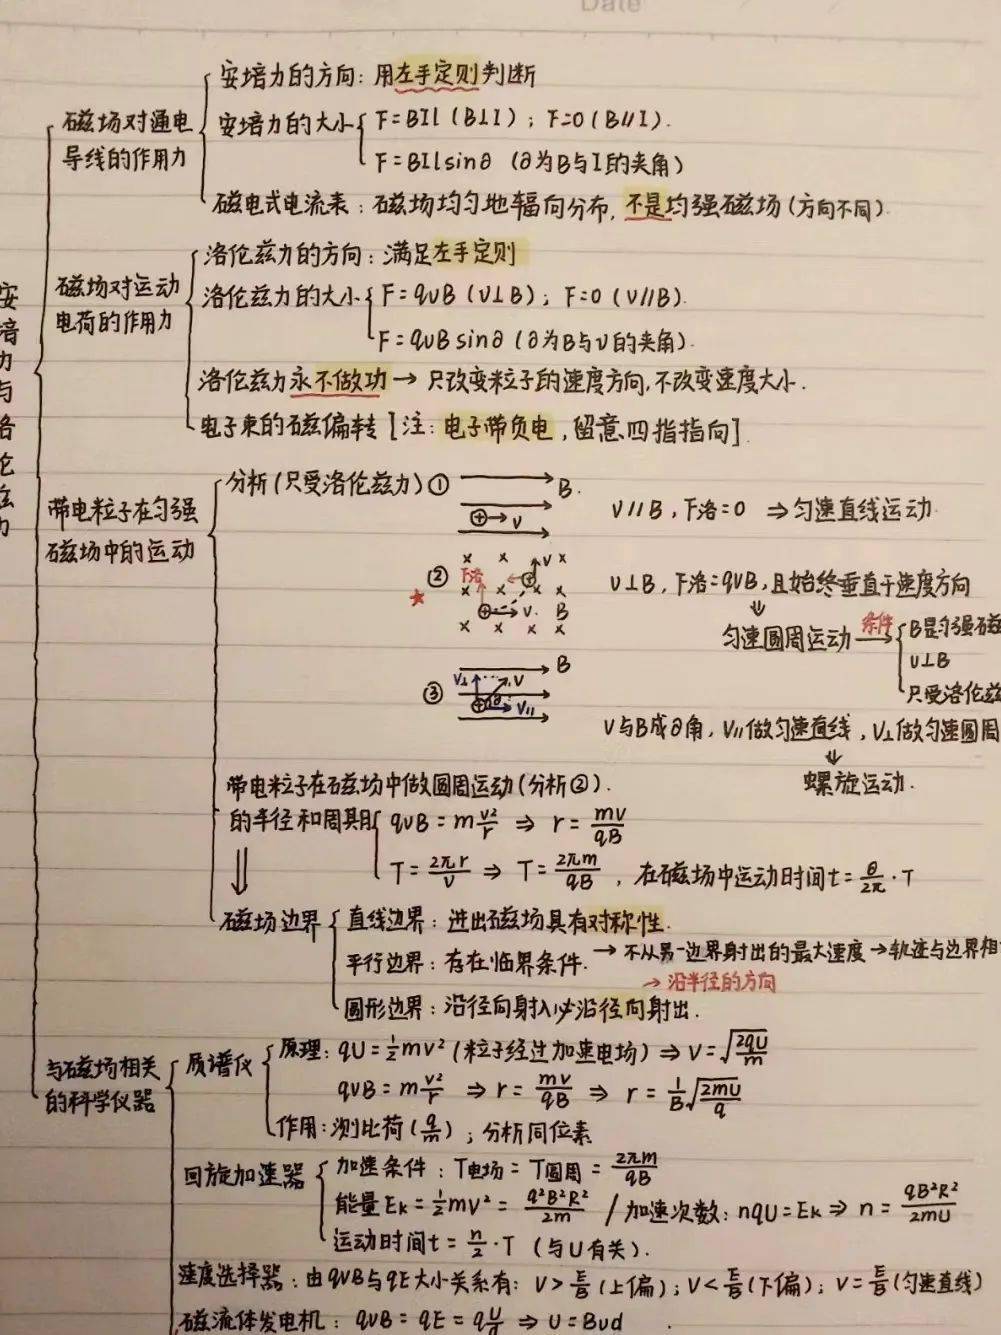 Date
安培力与洛伦兹力
磁场对通电导线的作用力
安培力的方向：用左手定则判断
安培力的大小
F=BIl（B⊥I）；F=0（B∥I）.
F=BIlsin∂（∂为B与I的夹角）
磁电式电流表：磁场均匀地辐向分布，不是均强磁场（方向不同）.
磁场对运动电荷的作用力
洛伦兹力的方向：满足左手定则
洛伦兹力的大小
F=qvB（v⊥B）；F=0（v∥B）.
F=qvBsin∂（∂为B与v的夹角）.
洛伦兹力永不做功→只改变粒子的速度方向,不改变速度大小.
电子束的磁偏转［注：电子带负电，留意四指指向］
带电粒子在匀强磁场中的运动
分析（只受洛伦兹力）① B.
⊕→v
v∥B，F洛=0 ⇒匀速直线运动.
② × × v ×
F洛
★ ⊕→v. B
v⊥B，F洛=qvB，且始终垂直于速度方向
⇓
匀速圆周运动 条件→
B是匀强磁
v⊥B
只受洛伦兹
③ B
v⊥ v
⊕ ∂ v∥
v与B成∂角，v∥做匀速直线，v⊥做匀速圆周
⇓
螺旋运动.
带电粒子在磁场中做圆周运动（分析②）.
的半径和周期
qvB=mv²/r ⇒ r=mv/qB
T=2πr/v ⇒ T=2πm/qB，在磁场中运动时间t=θ/2π·T
⇓
磁场边界
直线边界：进出磁场具有对称性.
平行边界：存在临界条件.→不从另一边界射出的最大速度→轨迹与边界相
→沿半径的方向
圆形边界：沿径向射入必沿径向射出.
与磁场相关的科学仪器
质谱仪
原理：qU=½mv²（粒子经过加速电场）⇒v=√(2qU/m)
qvB=mv²/r ⇒ r=mv/qB ⇒ r=1/B√(2mU/q)
作用：测比荷（q/m）；分析同位素
回旋加速器
加速条件：T电场=T圆周=2πm/qB
能量Ek=½mv²=q²B²R²/2m / 加速次数：nqU=Ek⇒n=qB²R²/2mU
运动时间t=n/2·T（与U有关）.
速度选择器：由qvB与qE大小关系有：v>E/B（上偏）；v<E/B（下偏）；v=E/B（匀速直线）
磁流体发电机：qvB=qE=qU/d ⇒ U=Bvd